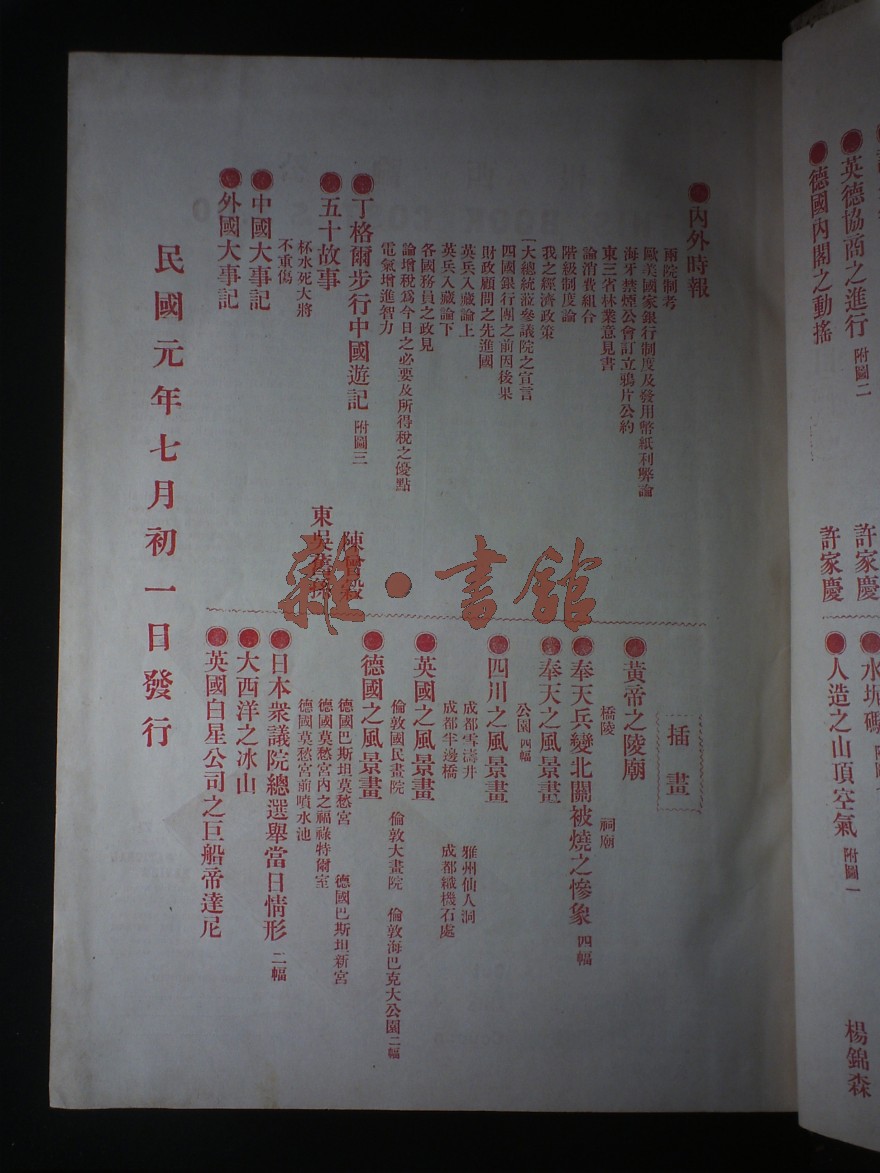 英德協商之進行 附圖二
許家慶
德國內閣之動搖
許家慶
人造之山頂空氣 附圖一
楊錦森
內外時報
兩院制考
歐美國家銀行制度及發用幣紙利弊論
海牙禁煙公會訂立鴉片公約
東三省林業意見書
論消費組合
階級制度論
我之經濟政策
大總統蒞參議院之宣言
四國銀行團之前因後果
財政顧問之先進國
英兵入藏論上
英兵入藏論下
各國務員之政見
論增稅爲今日之必要及所得稅之優點
電氣增進智力
丁格爾步行中國遊記 附圖三
五十故事
東吳
杯水死大將
不重傷
中國大事記
外國大事記
插畫
黃帝之陵廟
橋陵 祠廟
奉天兵變北關被燒之慘象 四幅
奉天之風景畫
公園 四幅
四川之風景畫
成都雪濤井 雅州仙人洞
成都半邊橋 成都織機石處
英國之風景畫
倫敦國民畫院 倫敦大畫院 倫敦海巴克大公園二幅
德國之風景畫
德國巴斯坦莫愁宮 德國巴斯坦新宮
德國莫愁宮內之福祿特爾室
德國莫愁宮前噴水池
日本衆議院總選舉當日情形 二幅
大西洋之冰山
英國白星公司之巨船帝達尼
民國元年七月初一日發行
雜·書館